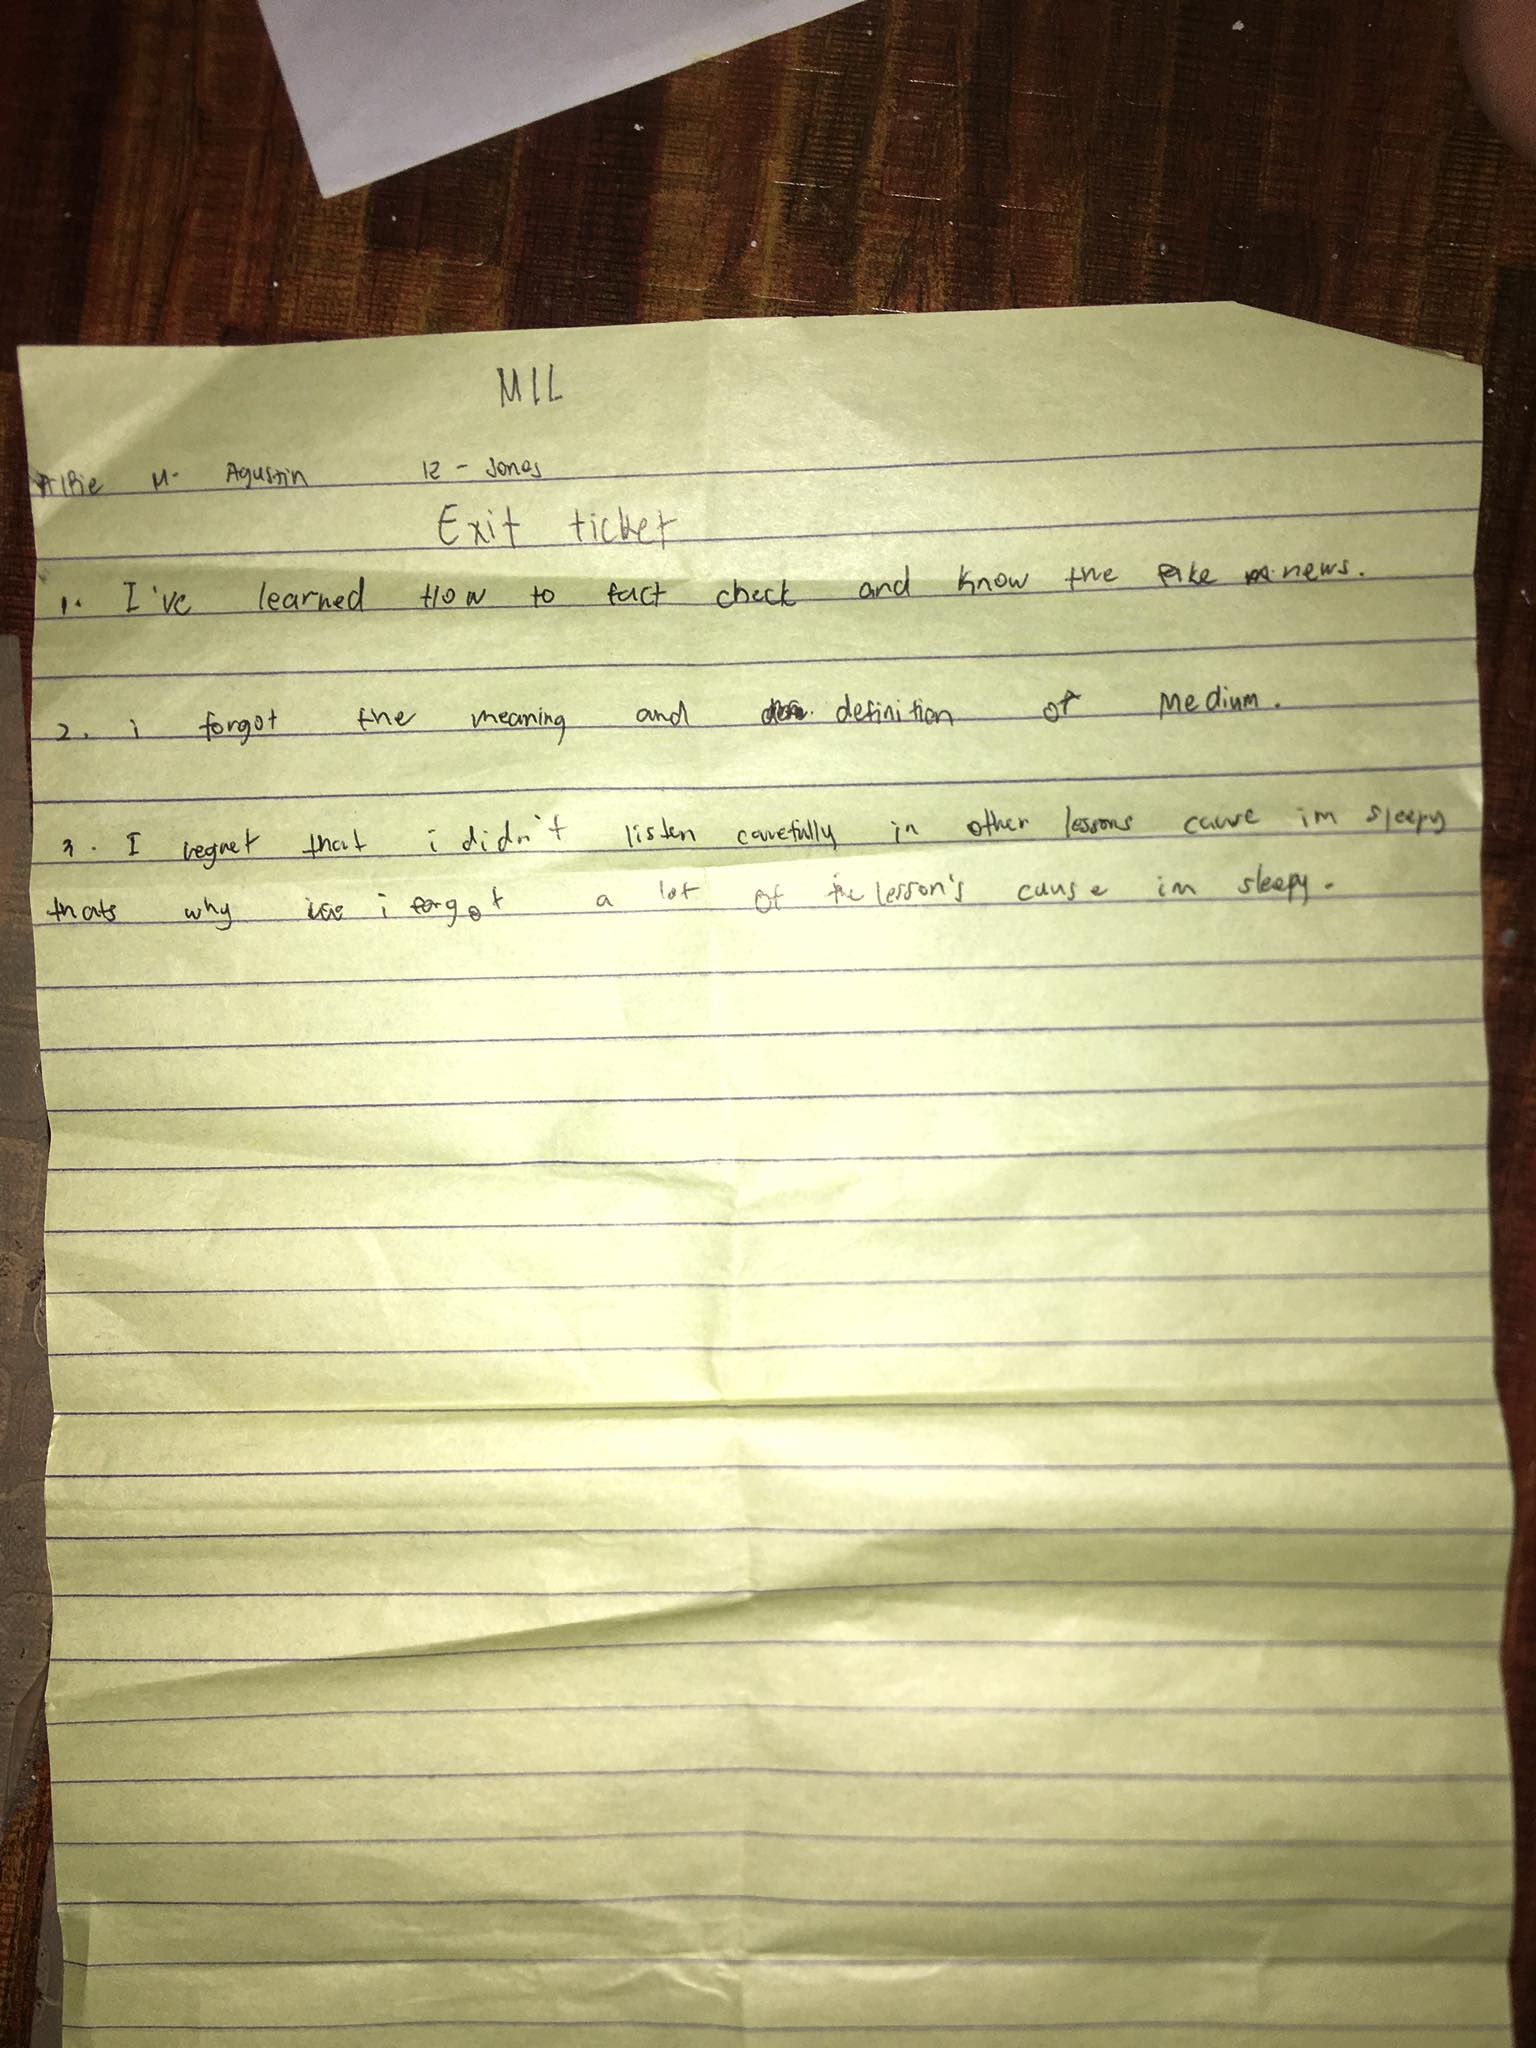 MIL
Alfie M. Agustin 12 - Jones
Exit ticket
1. I've learned How to fact check and know the fake news.
2. i forgot the meaning and definition of Medium.
3. I regret that i didn't listen carefully in other lessons cause im sleepy
thats why i forgot a lot of the lesson's cause im sleepy.